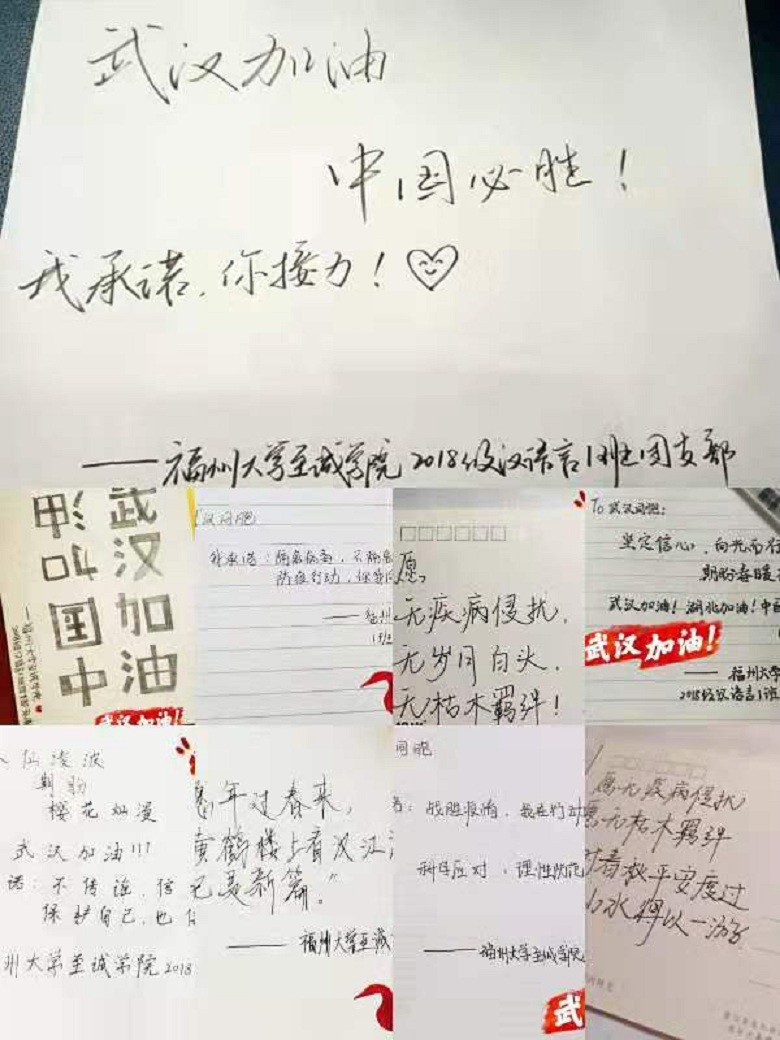 武汉加油
中国必胜！
我承诺，你接力！
——福州大学至诚学院2018级汉语言1班团支部
武汉加油
中国
武汉加油！
汉同胞
我承诺：隔离病毒，不隔离
防疫行动，保
——福州
1班
愿
无疾病侵扰，
无岁月白头，
无枯木羁绊！
To 武汉同胞：
坚定信心，向光而行
期盼春暖
武汉加油！湖北加油！中国
武汉加油！
——福州大学
2018级汉语言1班
仙凌波
期盼
樱花灿漫
武汉加油!!!
诺：不传谣，信
保护自己，也
州大学至诚学院2018
年过春来，
黄鹤楼上看汉江
已是新篇。”
——福州大学至诚
同胞
战胜疫情，我在行动
科学应对，理性防范
——福州大学至诚学院
武
愿无疾病侵扰
愿无枯木羁绊
平安度过
水将以一